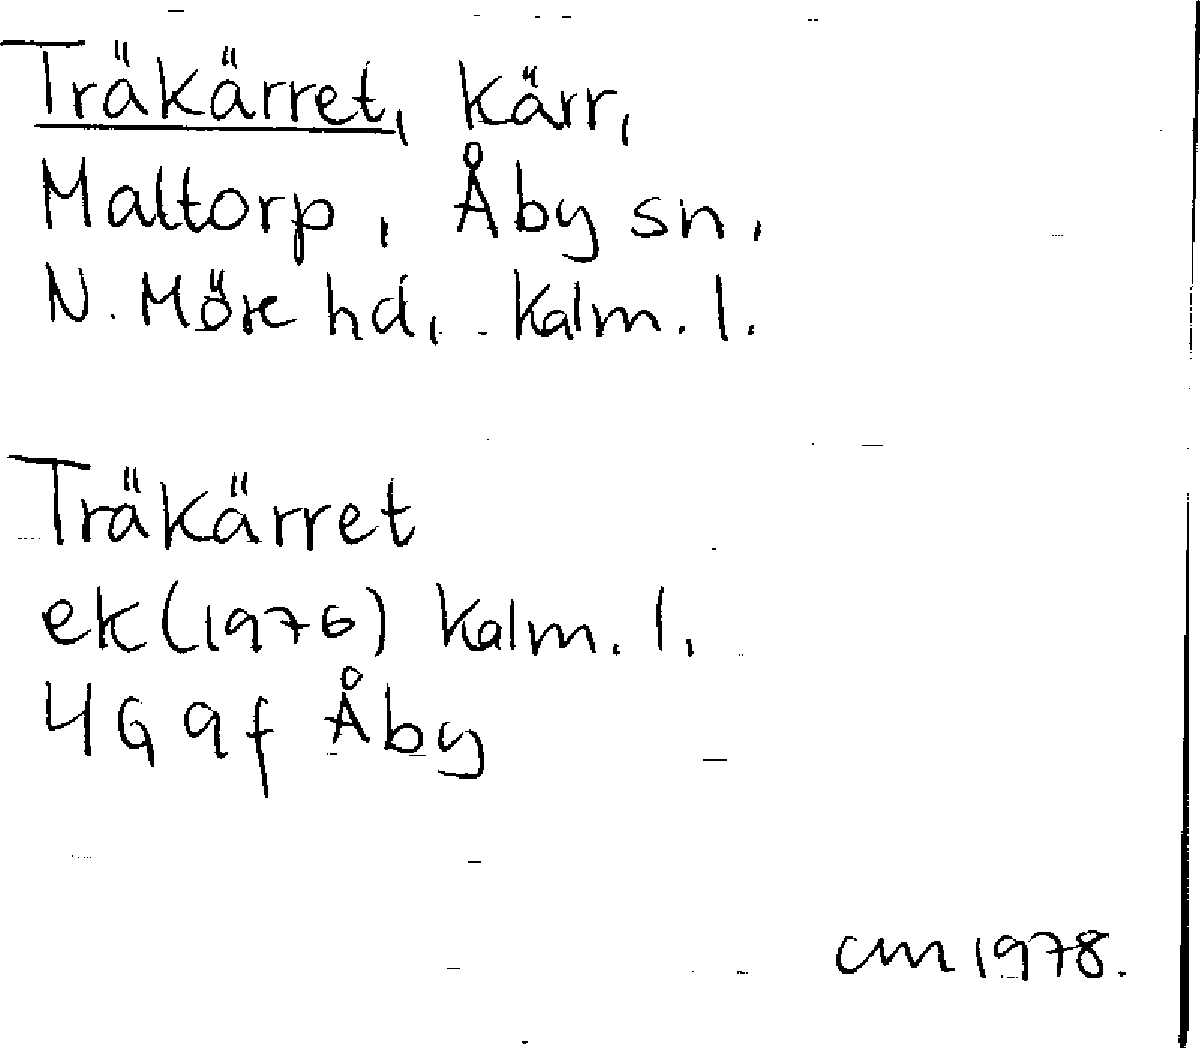 Träkärret, kärr,
Maltorp, Åby sn,
N. Möre hd, Kalm. l.
Träkärret
ek (1976) Kalm. l.
4G 9f Åby
cm 1978.